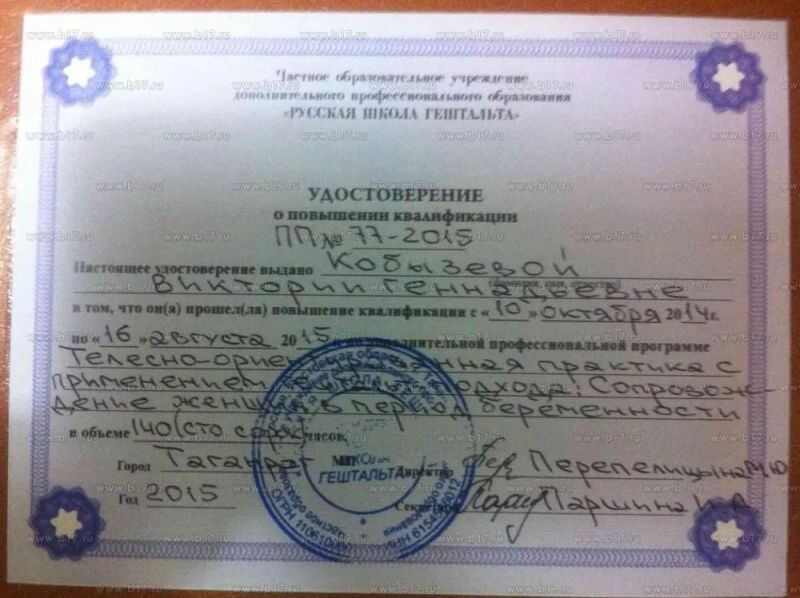 Частное образовательное учреждение
дополнительного профессионального образования
«РУССКАЯ ШКОЛА ГЕШТАЛЬТА»
УДОСТОВЕРЕНИЕ
о повышении квалификации
ПП № 77-2015
Настоящее удостоверение выдано Кобызевой
Виктории Геннадьевне
в том, что он(а) прошел(ла) повышение квалификации с «10» октября 2014г.
по «16» августа 2015 дополнительной профессиональной программе
Телесно-ориентированная практика с
применением подхода. Сопровож-
дение женщин в период беременности
в объеме 140 (сто сорок) часов.
Город Таганрог МП Директор Перепелицына М.Ю.
Год 2015 Секретарь Паршина И.А.
ШКОЛА
ГЕШТАЛЬТА
www.b17.ru